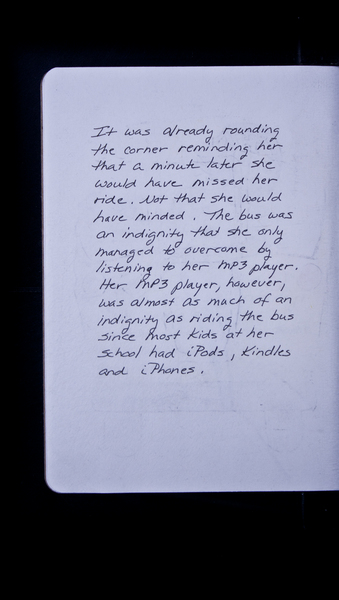 It was already rounding
the corner reminding her
that a minute later she
would have missed her
ride. Not that she would
have minded. The bus was
an indignity that she only
managed to overcome by
listening to her MP3 player.
Her MP3 player, however,
was almost as much of an
indignity as riding the bus
since most kids at her
school had iPods, Kindles
and iPhones.